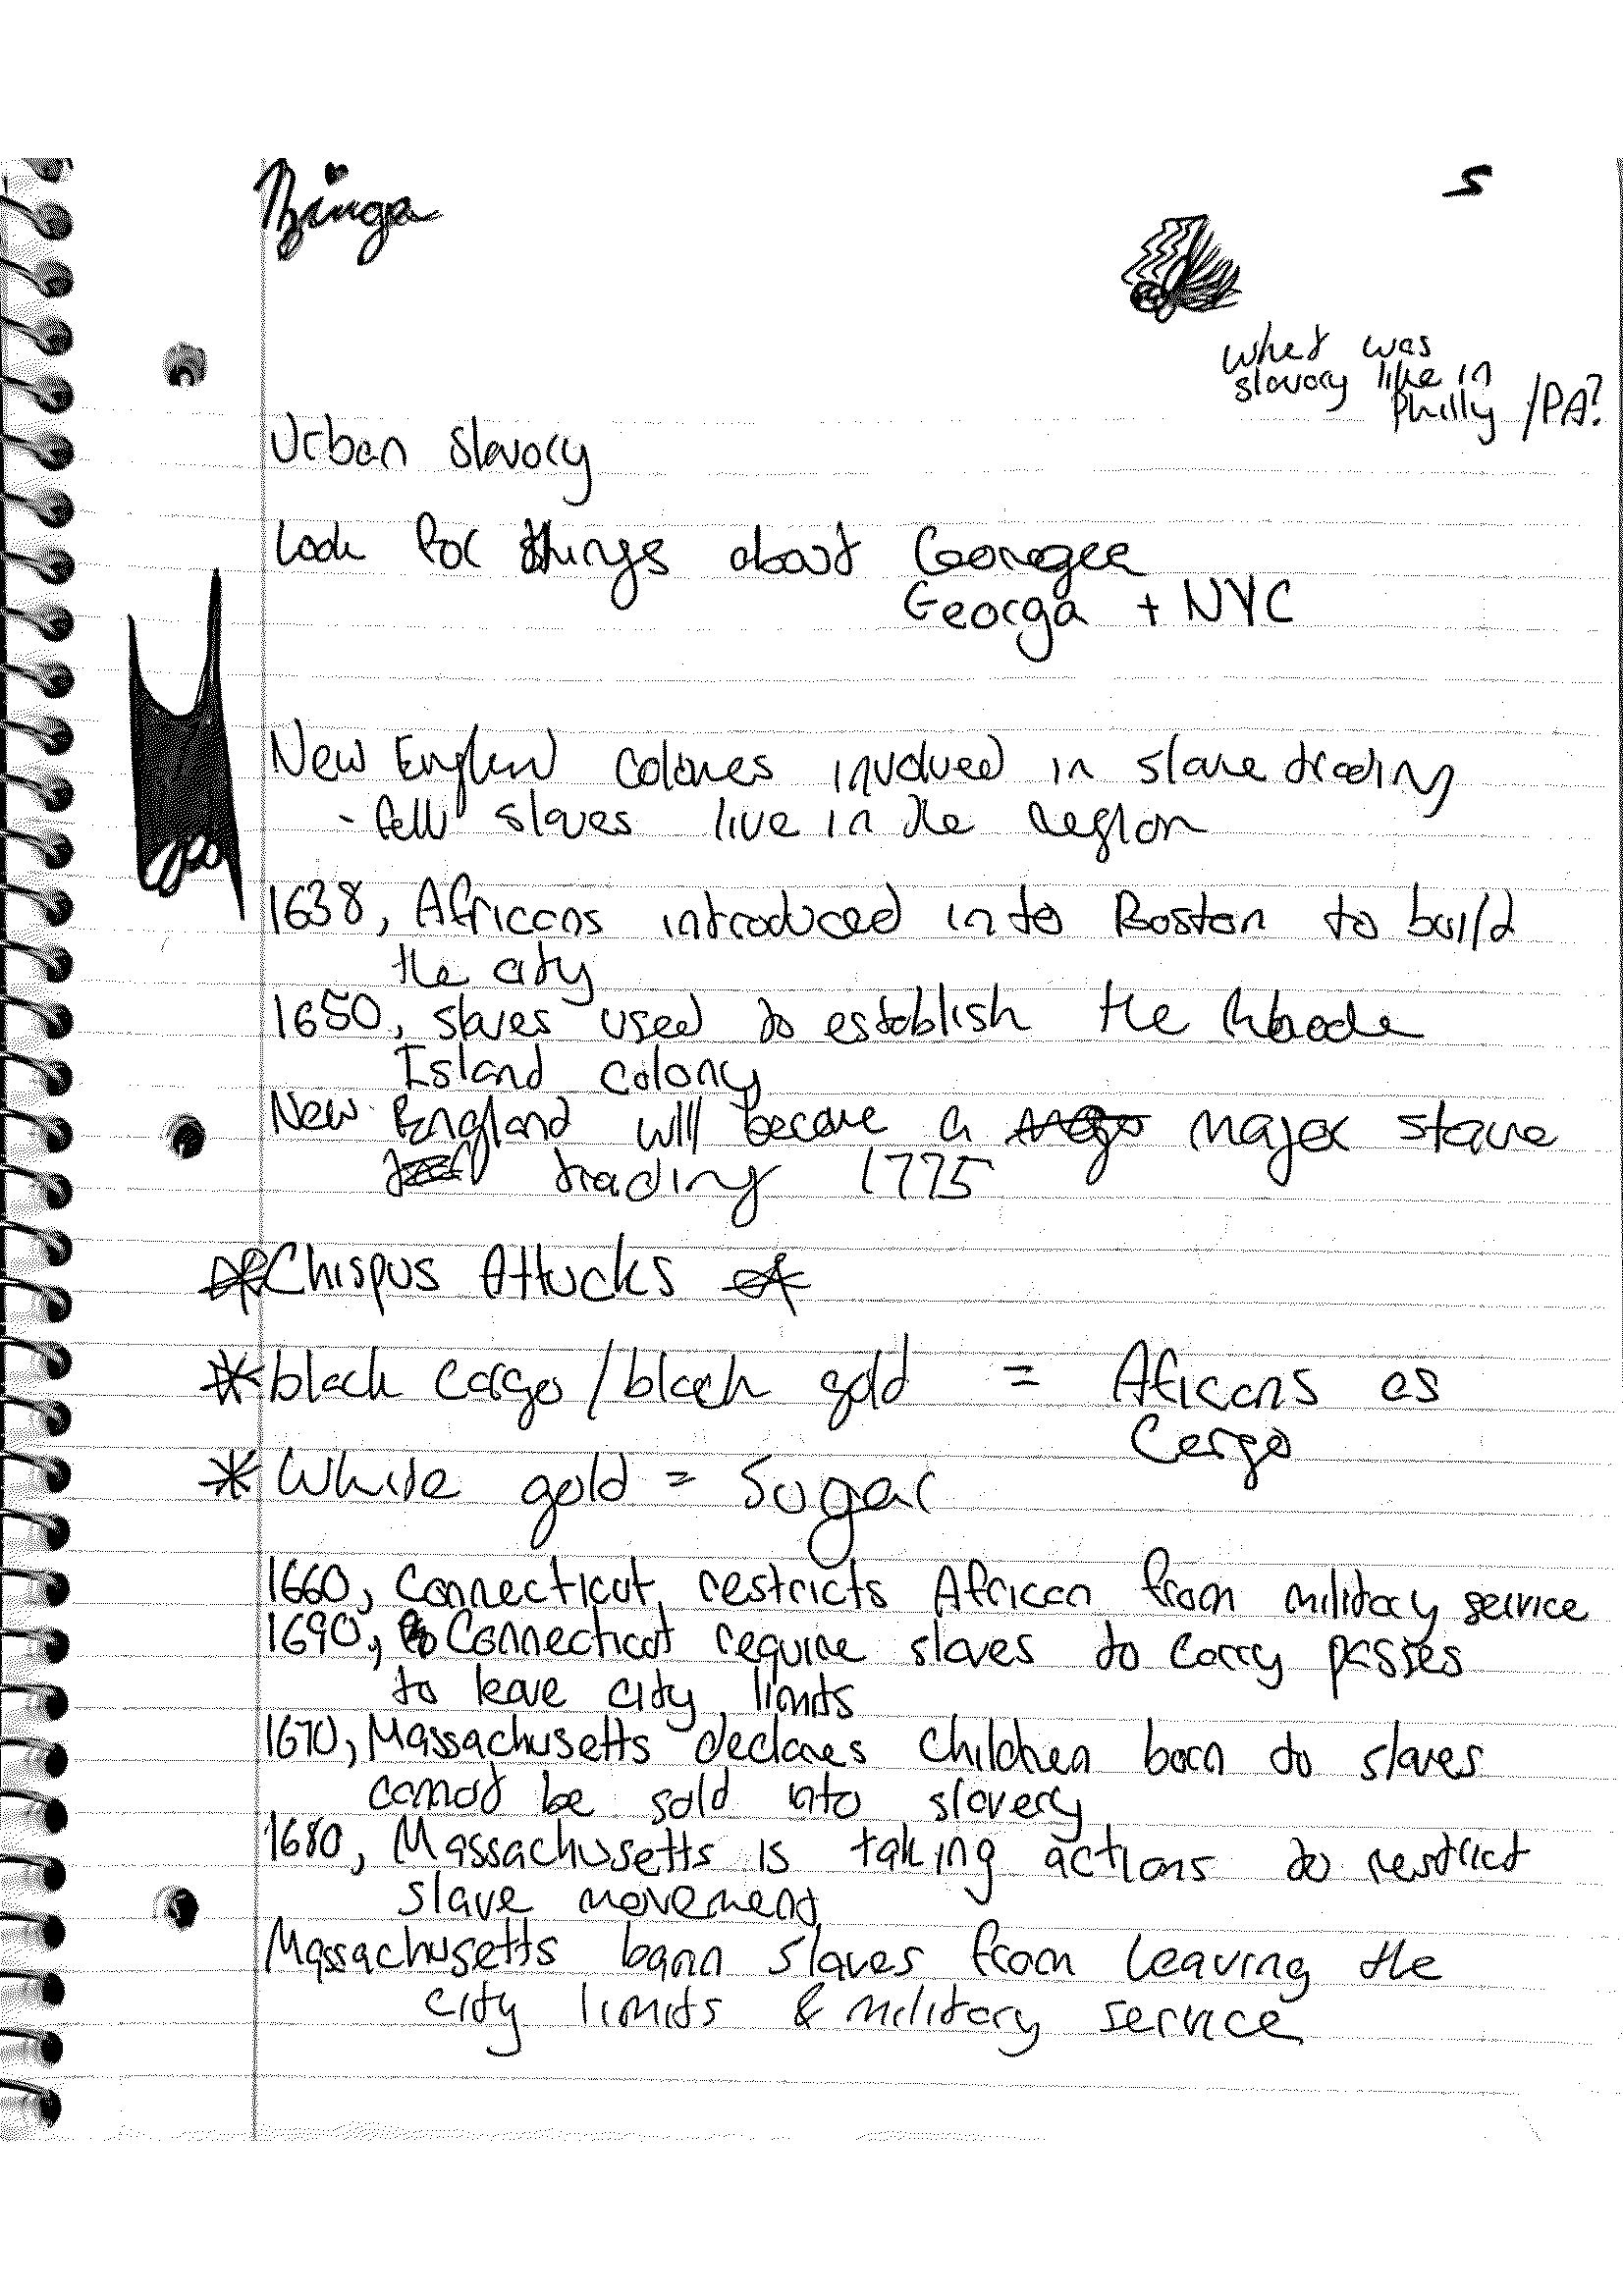 Nzinga
5
what was
slavory like in
Philly /PA?
Urban Slavory
Look for things about
Georga + NYC
New England colones involved in slave trading
- few slaves live in the region
1638, Africans introduced into Boston to build
the city
1650, slaves used to establish the Rhode
Island colony
New England will become a major slave
trading 1775
Chispus Attucks
black cargo / black gold = Aficans as
Cargo
White gold = Sugar
1660, Connecticut restricts African from military service
1690, Connecticut require slaves to carry passes
to leave city limits
1670, Massachusetts declares children born to slaves
cannot be sold into slavery
1680, Massachusetts is taking actions to restrict
slave movement
Massachusetts bann slaves from leaving the
city limits & military service